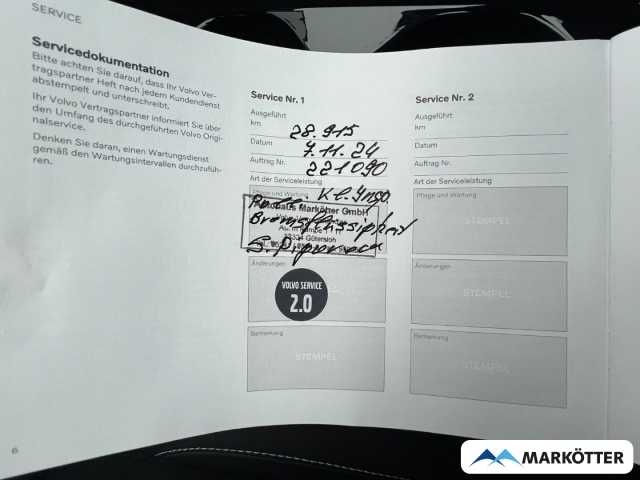 SERVICE
Servicedokumentation
Bitte achten Sie darauf, dass Ihr Volvo Ver-
tragspartner Heft nach jedem Kundendienst
abstempelt und unterschreibt.
Ihr Volvo Vertragspartner informiert Sie über
den Umfang des durchgeführten Volvo Origi-
nalservice.
Denken Sie daran, einen Wartungsdienst
gemäß den Wartungsintervallen durchzufüh-
ren.
6
Service Nr. 1
Ausgeführt
km
28.915
Datum
7.11.24
Auftrag Nr.
221090
Art der Serviceleistung
Pflege und Wartung
Kl. Insp.
Autohaus Markötter GmbH
Gütersloh
Änderungen
VOLVO SERVICE
2.0
Bemerkung
STEMPEL
Service Nr. 2
Ausgeführt
km
Datum
Auftrag Nr.
Art der Serviceleistung
Pflege und Wartung
STEMPEL
Änderungen
STEMPEL
Bemerkung
STEMPEL
MARKÖTTER